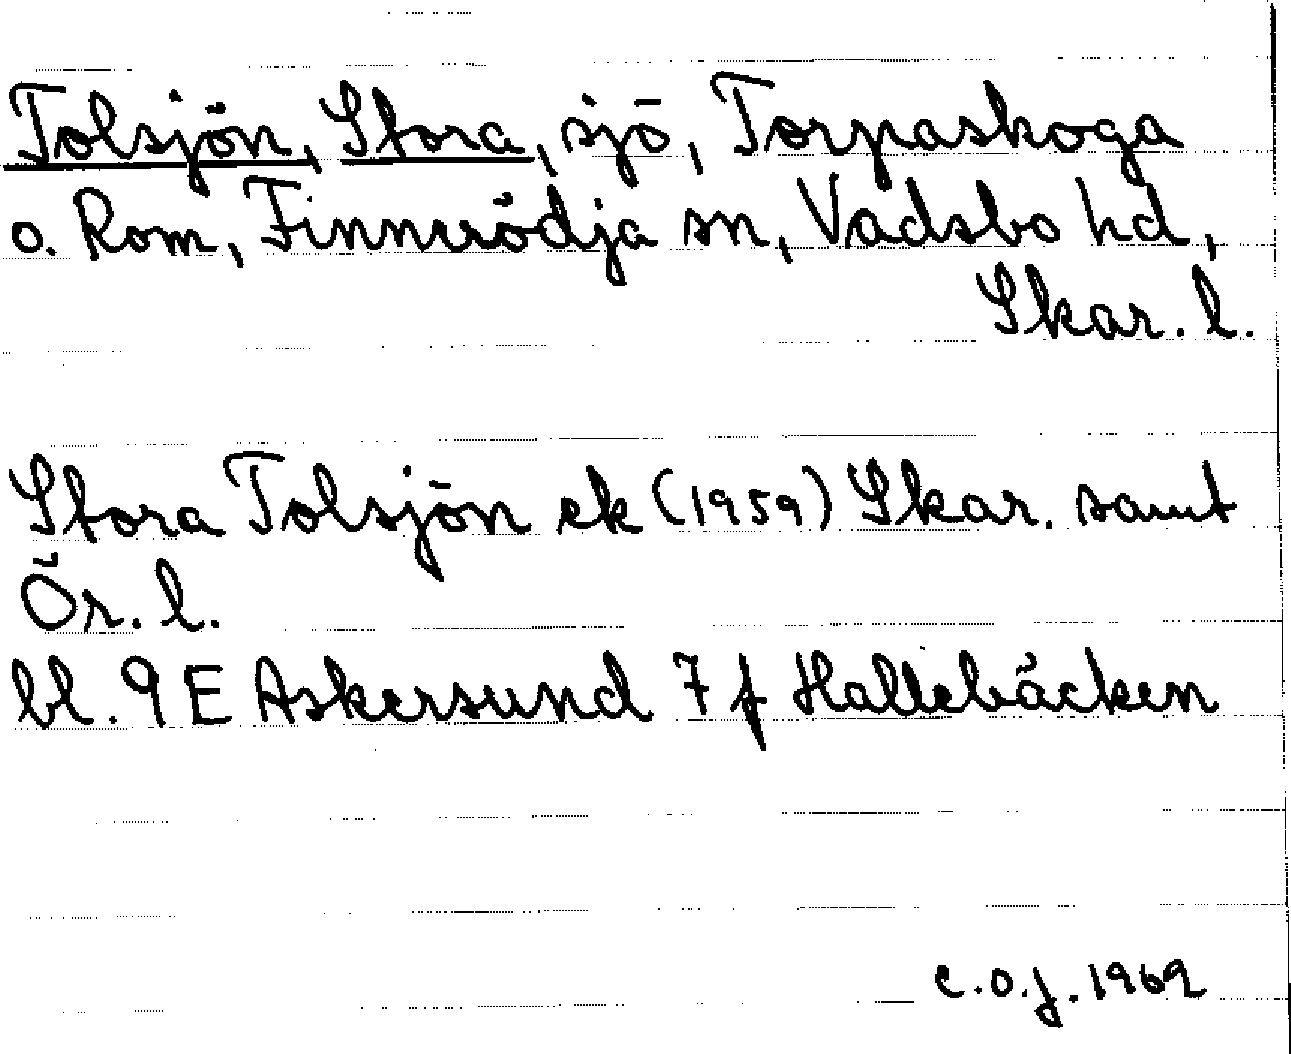 Tolsjön, Stora, sjö, Torpaskoga
o. Rom, Finnerödja sn, Vadsbo hd,
Skar. l.
Stora Tolsjön ek (1959) Skar. samt
Ör. l.
bl. 9 E Askersund 7 f Hallebäcken
C.O.J. 1969